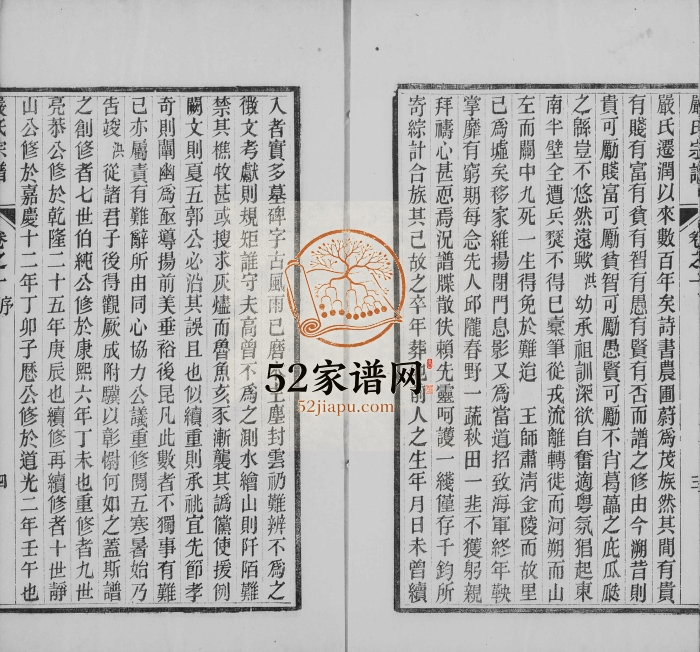 嚴氏宗譜
嚴氏遷潤以來數百年矣詩書農圃蔚為茂族然其間有貴
有賤有富有貧有智有愚有賢有否而譜之修由今溯昔則
貴可勵賤富可勵貧智可勵愚賢可勵不肖葛藟之庇瓜瓞
之緜豈不悠然遠歟洪幼承祖訓深欲自奮適粵氛猖起東
南半壁全遭兵燹不得已橐筆從戎流離轉徙而河朔而山
左而關中九死一生得免於難迨 王師肅清金陵而故里
已為墟矣移家維揚閉門息影又為當道招致海軍終年鞅
掌靡有窮期每念先人邱隴春野一蔬秋田一韭不獲躬親
拜禱心甚恧焉況譜牒散佚賴先靈呵護一綫僅存千鈞所
寄綜計合族其已故之卒年葬地前人之生年月日未曾續
卷之一
三
入者實多墓碑字古風雨已磨宅塵封雲礽難辨不為之
徵文考獻則規矩誰守夫高曾不為之測水繪山則阡陌難
禁其樵牧甚或搜求灰燼而魯魚亥豕漸襲其譌儻使援例
闕文則夏五郭公必沿其誤且也似續重則承祧宜先節孝
奇則闡幽為亟導揚前美垂裕後昆凡此數者不獨事有難
已亦屬責有難辭所由同心協力公議重修閱五寒暑始乃
告竣洪從諸君子後得觀厥成附驥以彰慚何如之蓋斯譜
之創修者七世伯純公修於康熙六年丁未也重修者九世
亮恭公修於乾隆二十五年庚辰也續修再續修者十世靜
山公修於嘉慶十二年丁卯子懋公修於道光二年壬午也
嚴氏宗譜
卷之一
序
四
52家谱网
52jiapu.com